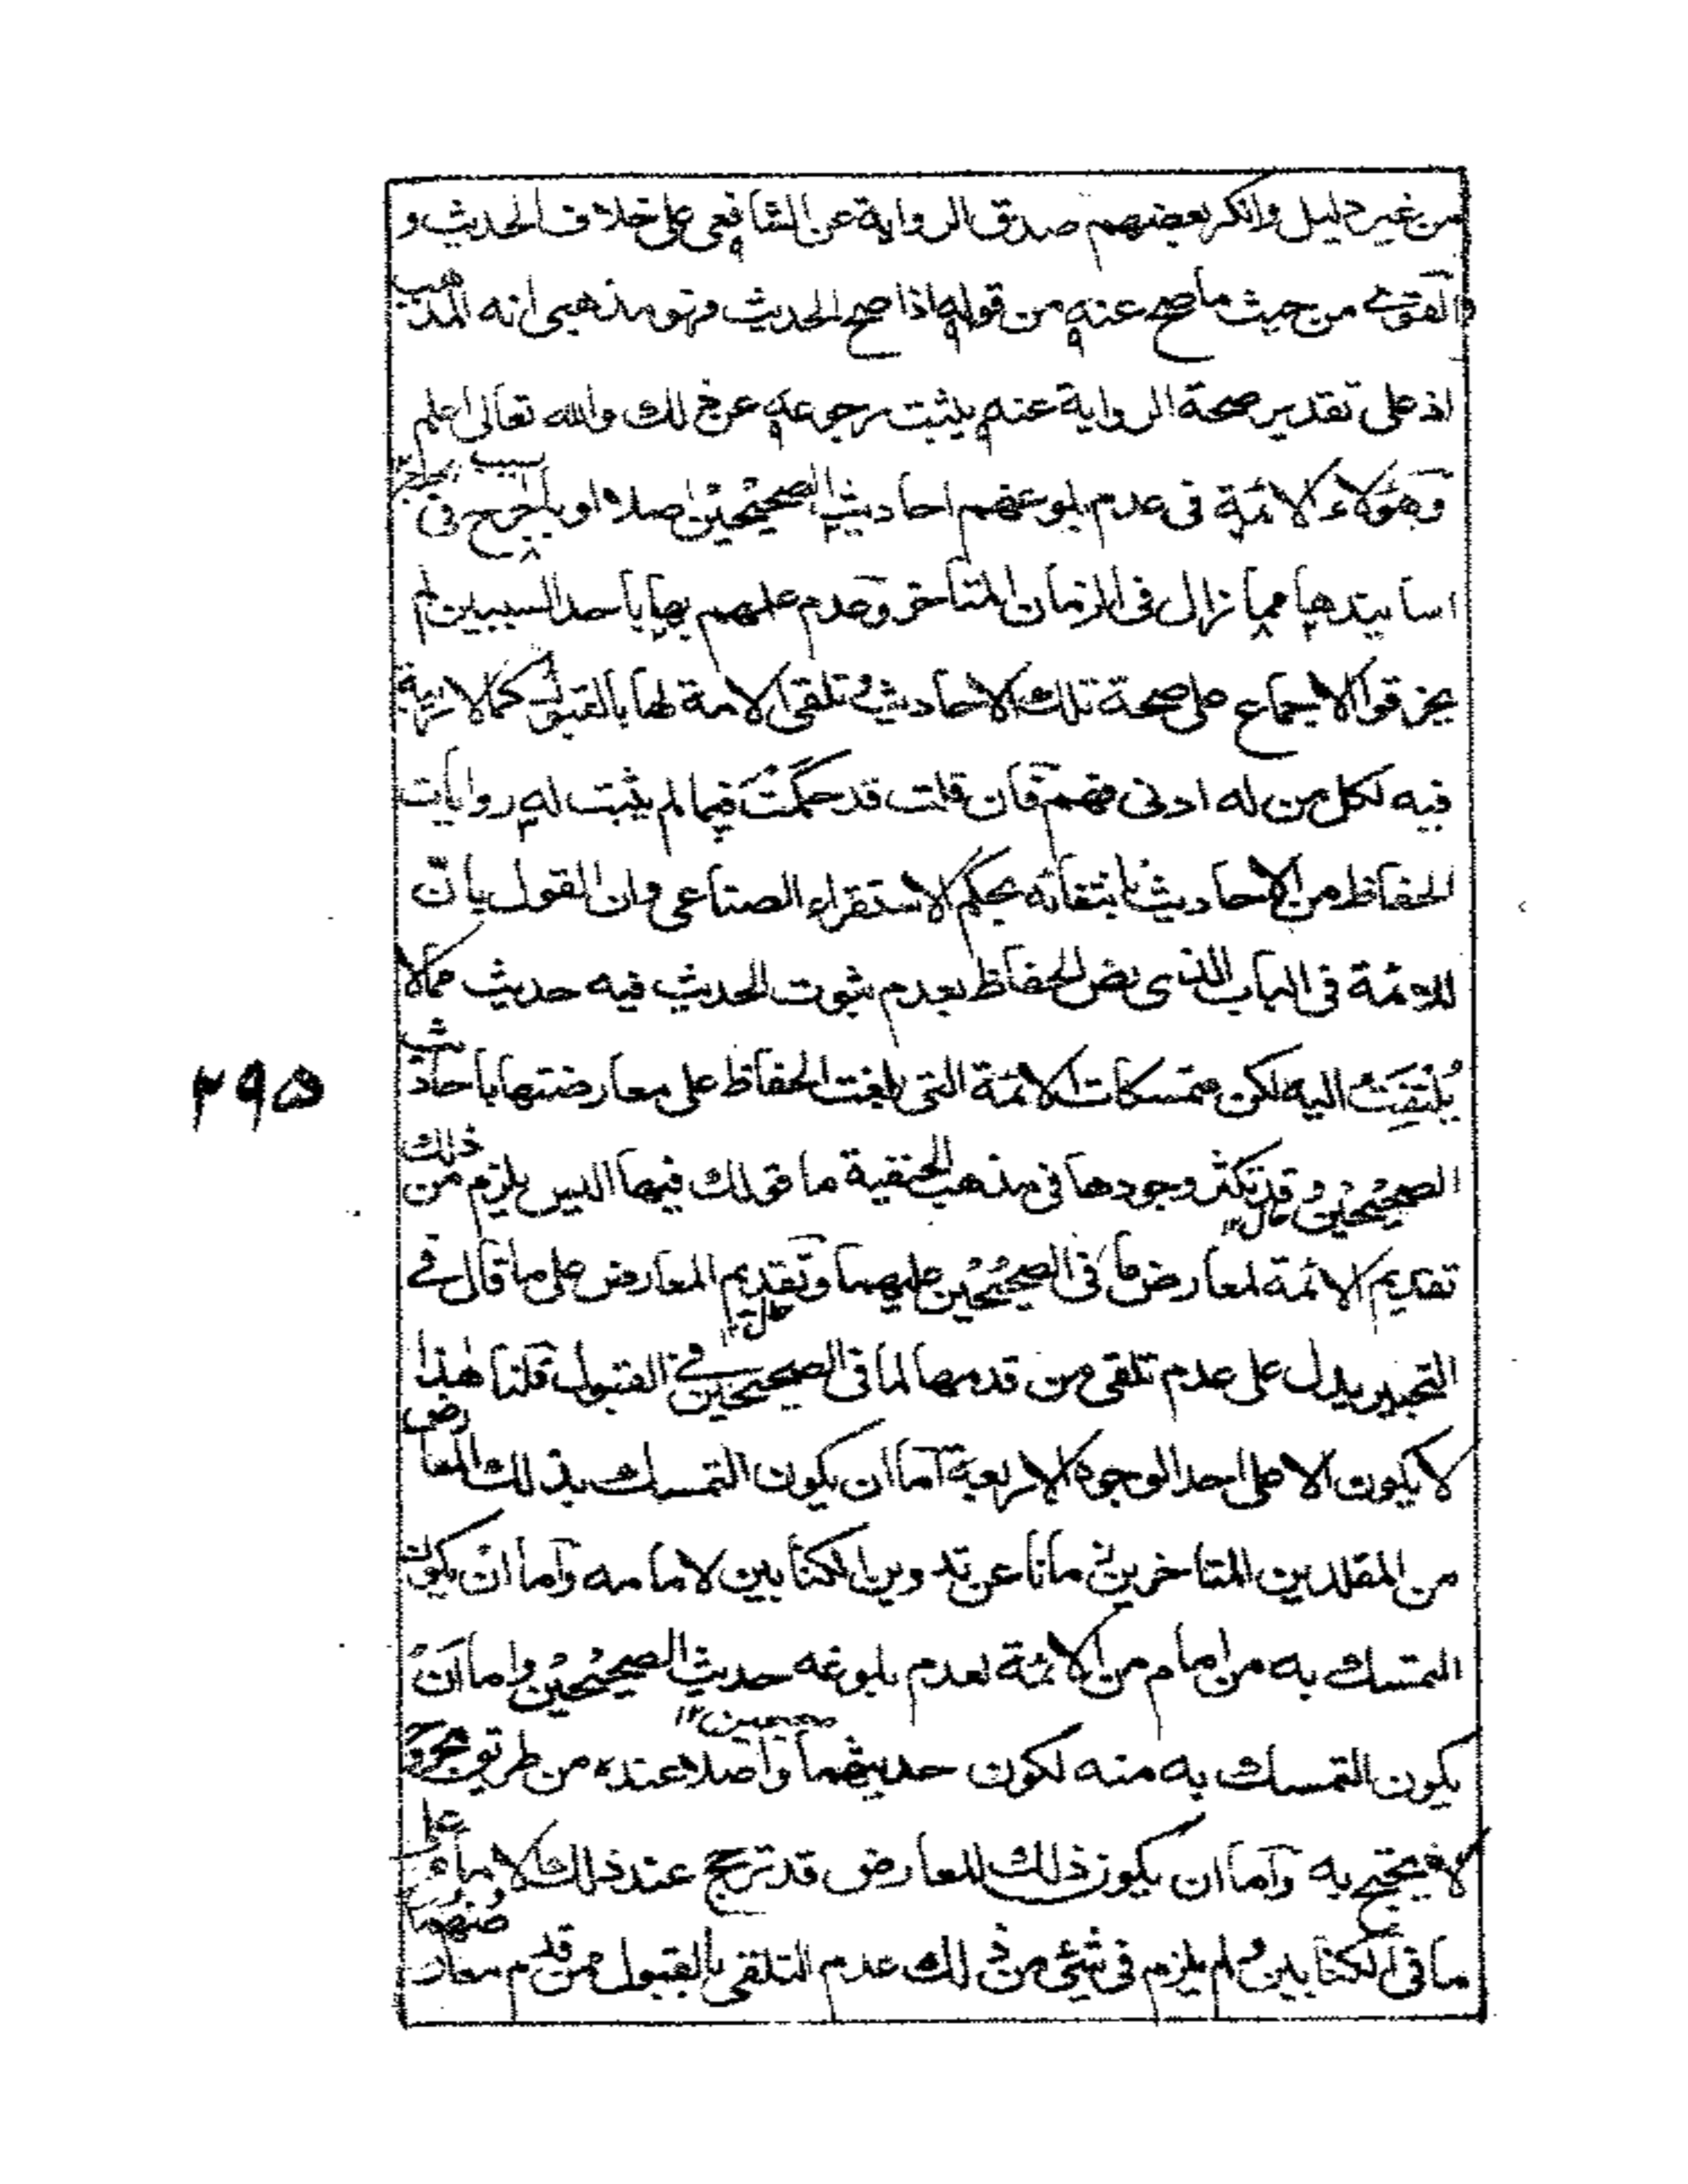 من غير دليل وانكر بعضهم صدق الرواية عن الشافعى على خلاف الحديث و
الفتوى من حيث ما صح عنه من قوله اذا صح الحديث فهو مذهبى انه المذهب
اذ على تقدير صحة الرواية عنه يثبت رجوعه عن ذلك والله تعالى اعلم
وهؤلاء الائمة فى عدم بلوغهم احاديث الصحيحين اصلا او بالجرح فى
اسانيدها مما نزال فى الزمان المتأخر وعدم علمهم بها بأحد السببين لم
يخرقوا الاجماع على صحة تلك الاحاديث وتلقى الامة لها بالقبول كما لا ريبة
فيه لكل من له ادنى فهم فان قلت قد حكمت فيما لم يثبت له روايات
الحفاظ من الاحاديث بانتفائه بحكم الاستقراء الصناعى وان القول بان
للائمة فى الباب الذى نص الحفاظ بعدم ثبوت الحديث فيه حديث مما لا
يُلْتَفَتُ اليه لكن متمسكات الائمة التى بلغت الحفاظ على معارضتها باحاديث
الصحيحين وقد تكثر وجودها فى مذهب الحنفية ما قولك فيها اليس يلزم من ذلك
تقديم الائمة لمعارض ما فى الصحيحين عليهما وتقديم المعارض على ما قال فى
التحرير يدل على عدم تلقى من قدمها لما فى الصحيحين فى القبول قلنا هذا
لا يكون الا على احد الوجوه الاربعة اما ان يكون التمسك بذلك المعارض
من المقلدين المتاخرين زمانا عن تدوين الكتابين لامامه واما ان يكون
التمسك به من امام من الائمة لعدم بلوغه حديث الصحيحين واما ان
يكون التمسك به منه لكون حديثهما واصلا عنده من طريق مجروح
لا يحتج به واما ان يكون ذلك المعارض قد ترجح عند ذلك الامام على
ما فى الكتابين ولم يلزم فى شئ من ذلك عدم التلقى بالقبول ممن قدم معار
٢٩٥